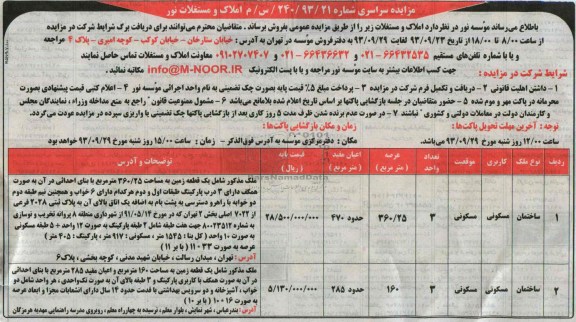 مزایده سراسری شماره ۹۳/۲۱ /۲۴۰ /س/م املاک و مستغلات نور
باطلاع می‌رساند موسسه نور در نظر دارد املاک و مستغلات زیر را از طریق مزایده عمومی بفروش برساند . متقاضیان محترم می‌توانند برای دریافت برگ شرایط شرکت در مزایده
از ساعت ۸/۰۰ تا ۱۸/۰۰ از تاریخ ۹۳/۰۹/۲۳ لغایت ۹۳/۰۹/۲۹ به دفتر فروش موسسه در تهران به آدرس: خیابان ستارخان - خیابان کوکب - کوچه امیری - پلاک ۴ مراجعه
و یا با شماره تلفن‌های مستقیم ۶۶۴۳۲۵۳۵-۰۲۱ و ۶۶۴۳۶۶۳۲-۰۲۱ و ۰۹۱۰۲۷۰۷۴۰۷ معاونت املاک و مستغلات موسسه نور تماس
جهت کسب اطلاعات بیشتر به سایت موسسه نور مراجعه و یا با پست الکترونیک info@M-NOOR.IR مکاتبه نمائید.
شرایط شرکت در مزایده :
۱- داشتن اهلیت قانونی ۲- دریافت و تکمیل فرم شرکت در مزایده ۳- پرداخت مبلغ ۵٪ قیمت پایه بصورت چک تضمینی به نام واحد اجرائی موسسه نور ۴- اعلام کتبی قیمت پیشنهادی بصورت
محرمانه در پاکت مهر و موم شده ۵- حضور متقاضیان در جلسه بازگشایی پاکتها بر اساس تاریخ اعلام شده بلامانع می‌باشد ۶- مشمول ممنوعیت قانون "راجع به منع مداخله وزراء ، نمایندگان مجلس
و کارمندان دولت در معاملات دولتی و کشوری" نباشند ۷- در صورت عدم برنده شدن ظرف مدت ۵ روز کاری بعد از بازگشایی پاکتها چک تضمینی یا واریزی سپرده در مزایده عودت می‌گردد.
توجه : آخرین مهلت تحویل پاکت‌ها: زمان و مکان بازگشایی پاکت‌ها:
ساعت ۱۲/۰۰ روز شنبه مورخ ۹۳/۰۹/۲۹ می‌باشد. مکان : دفتر مرکزی موسسه به آدرس فوق‌الذکر - زمان : ساعت ۱۵/۰۰ روز شنبه مورخ ۹۳/۰۹/۲۹
ردیف نوع ملک کاربری موقعیت تعداد واحد عرصه (متر مربع) اعیان مفید (متر مربع) قیمت پایه (ریال) توضیحات و آدرس
۱ ساختمان مسکونی مسکونی ۳ ۳۶۰/۲۵ حدود ۴۷۰ ۲۸/۵۰۰/۰۰۰/۰۰۰
ملک مذکور شامل یک قطعه زمین به مساحت ۳۶۰/۲۵ مترمربع با بنای احداثی در آن به صورت
همکف دارای ۳ درب پارکینگ طبقات اول و دوم هر کدام دارای ۶ خواب و همچنین نیم طبقه دوم
دو خوابه با راهرو دسترسی به پشت بام به اضافه یک اتاق بالای آن به پلاک ثبتی ۲۰۲۸ فرعی
از ۲۰۲۲ اصلی بخش ۲ تهران که در مورخ ۹۱/۰۵/۱۴ از شهرداری منطقه ۸ پروانه تخریب و نوسازی
به شماره ۸۰۰۲۳۵۱۲ جهت هفت طبقه شامل ۲ طبقه پارکینگ به صورت ۱۲ واحد + ۵ طبقه مسکونی
به صورت ۱۰ واحد (کل بنا : ۱۵۴۵ متر ، مسکونی : ۹۱۷ متر ، پارکینگ : ۴۰۵ متر)
عرصه به صورت ۳۳ × ۱۱ (با بر ۱۱)
آدرس : تهران ، میدان رسالت ، خیابان شهید مدنی ، کوچه بخشی ، پلاک ۶
۲ ساختمان مسکونی مسکونی ۳ ۱۶۰ حدود ۲۸۵ ۵/۱۳۰/۰۰۰/۰۰۰
ملک مذکور شامل یک قطعه زمین به مساحت ۱۶۰ مترمربع و اعیان مفید ۲۸۵ مترمربع با بنای احداثی
در آن به صورت همکف با کاربری پارکینگ و ۳ طبقه بالای آن به صورت تک‌واحدی ، هر واحد شامل دو
خواب ، آشپزخانه و دو سرویس بهداشتی با قدمت حدود ۱۴ سال دارای انشعابات مجزا و ابعاد عرصه
به صورت ۱۶ × ۱۰ (با بر ۱۰)
آدرس : بندرعباس ، شهر نمایش ، بلوار معلم ، نرسیده به چهارراه معلم ، روبروی مدرسه راهنمایی مهدیه هرمزگان